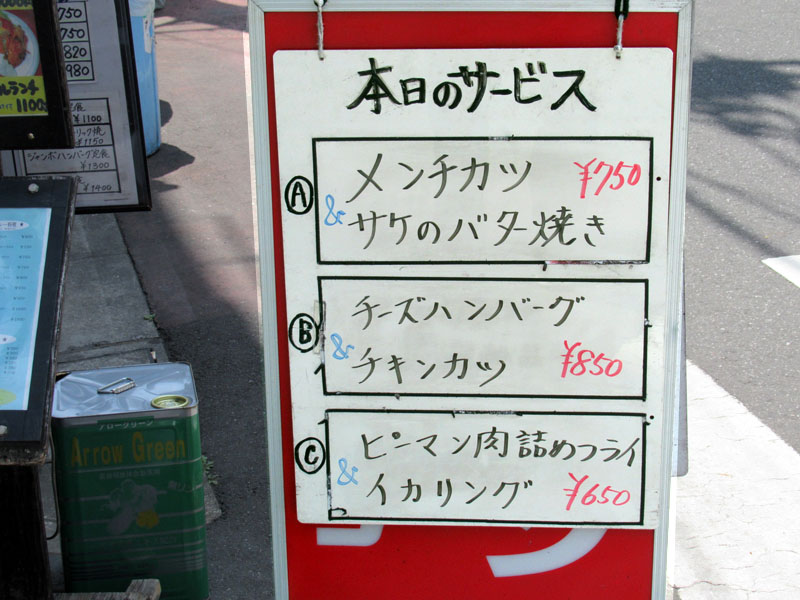 本日のサービス
Ⓐ
メンチカツ ¥750
&
サケのバター焼き
Ⓑ
チーズハンバーグ
&
チキンカツ ¥850
Ⓒ
ピーマン肉詰めフライ
&
イカリング ¥650
750
750
820
980
ランチ
1100
¥1100
¥1150
ジャンボハンバーグ定食
¥1300
¥1400
アローグリーン
Arrow Green